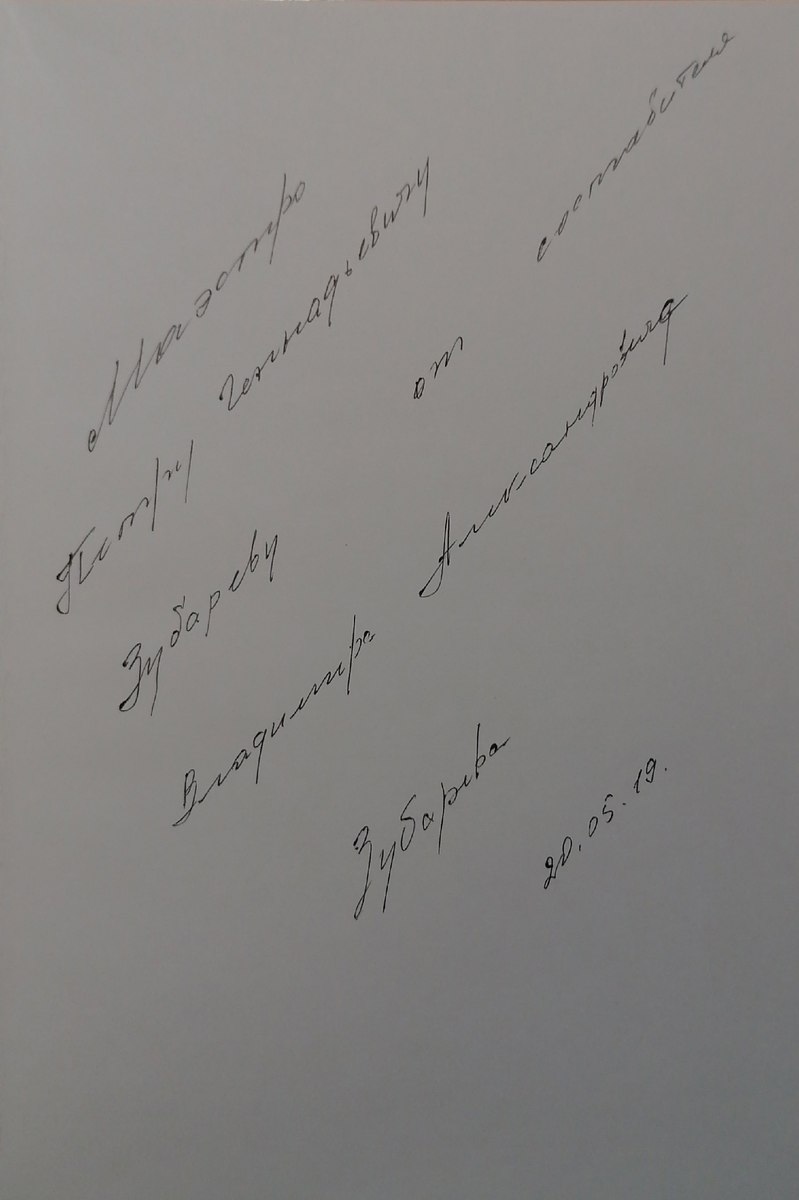 Маэстро
Петру Геннадьевичу
Зубареву от составителя
Владимира Александровича
Зубарева
20.05.19.